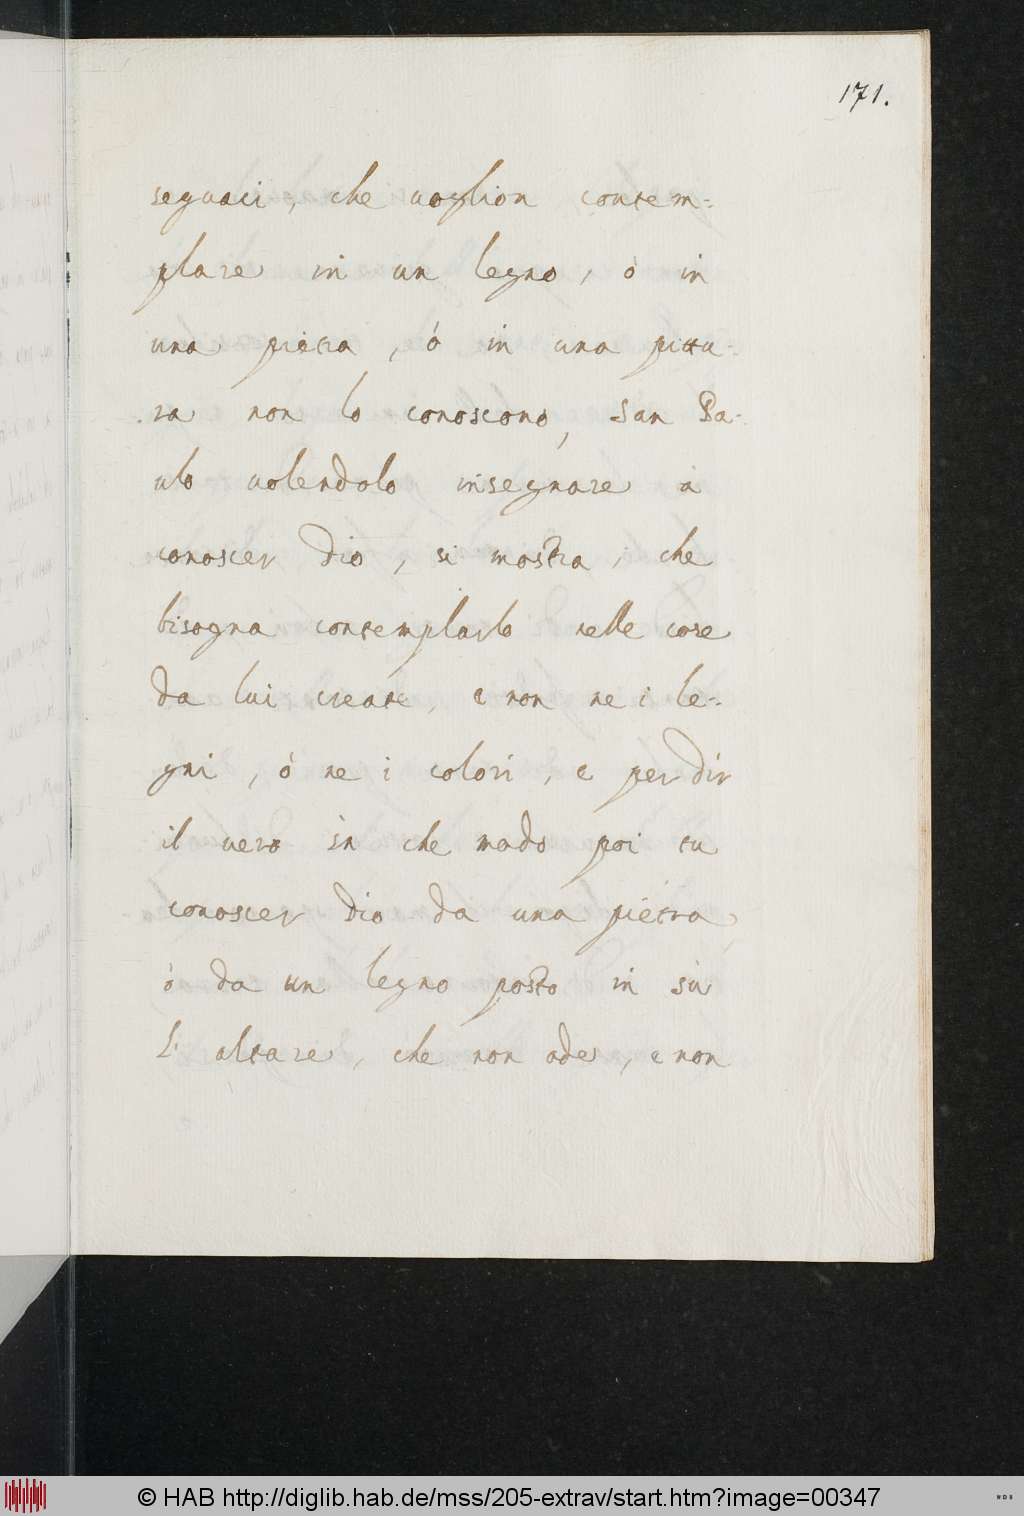 171.
seguaci, che uoglion contem=
plare in un legno, ò in
una pietra, ó in una pittu-
ra non lo conoscono, San Pa-
ulo uolendolo insegnare à
conoscer Dio, si mostra, che
bisogna contemplarlo nelle cose
da lui create, e non ne i le-
gni, ò ne i colori, e per dir
il uero in che modo poi tu
conoscer Dio da una pietra,
ò da un legno posto in sù
l'altare, che non ode, e non
© HAB http://diglib.hab.de/mss/205-extrav/start.htm?image=00347